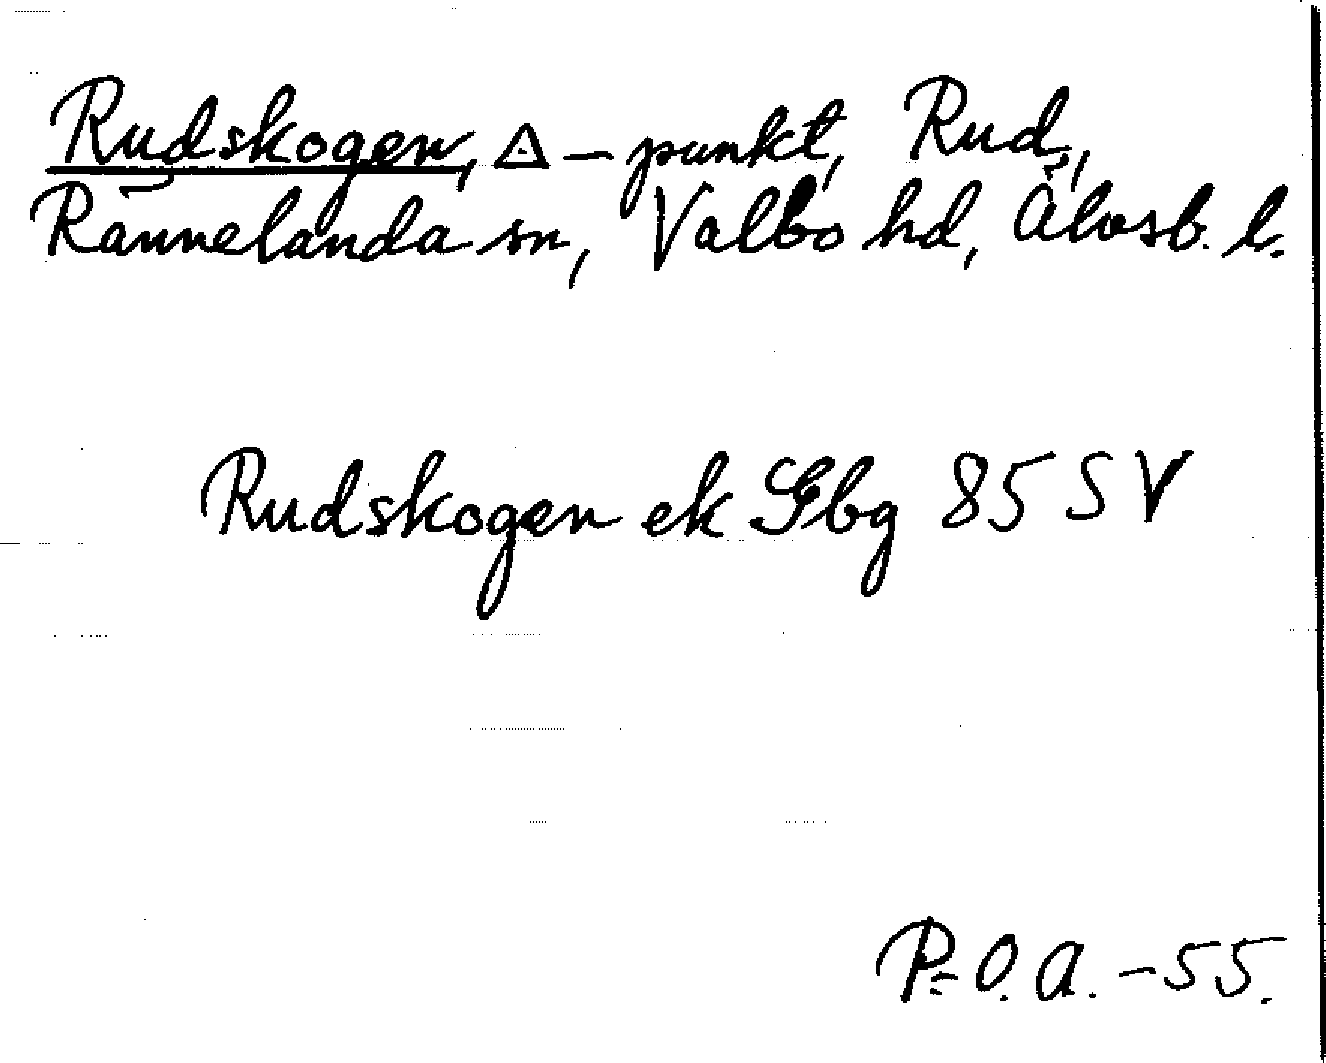 Rudskogen, △ – punkt, Rud,
Rännelanda sn, Valbo hd, Älvsb. l.
Rudskogen ek Gbg 85 SV
P.O.A. – 55.